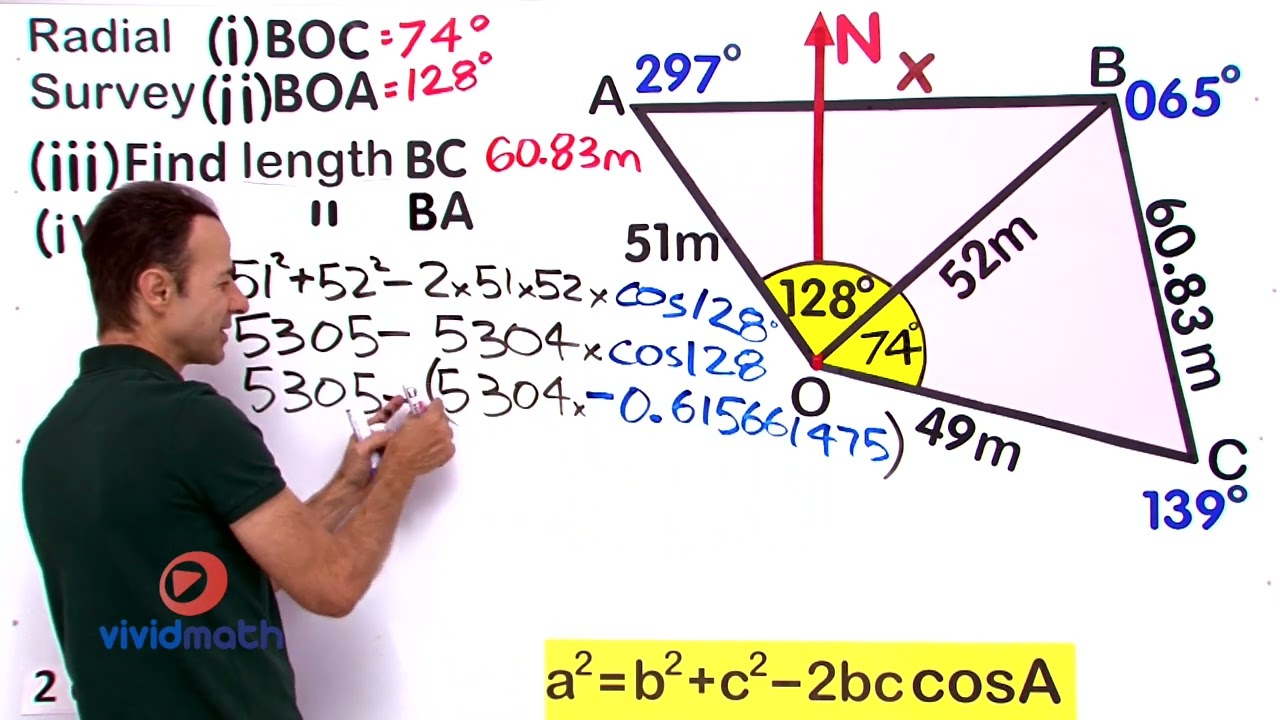 Radial (i) BOC = 74°
Survey (ii) BOA = 128°
(iii) Find length BC 60.83m
(iv
" BA
51² + 52² - 2 × 51 × 52 × cos128°
5305 - 5304 × cos128
5305 - (5304 × -0.615661475)
N
x
A 297°
B 065°
51m
52m
60.83 m
128°
74°
O
49m
C
139°
vividmath
2
a² = b² + c² - 2bc cosA